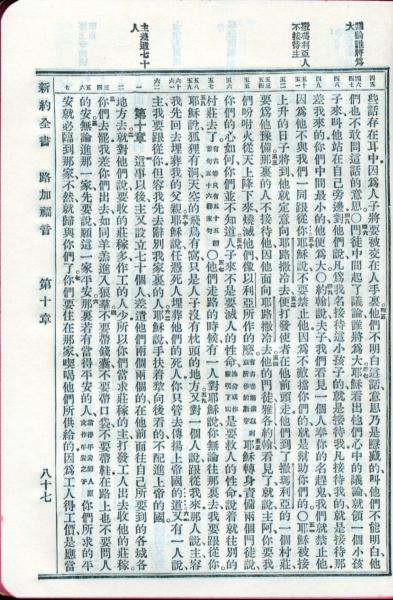 議論誰將爲大
撒瑪利亞人不接待主
主差遣七十人
些話存在耳中因爲人子將要被交在人手裏他們不明白這話意思乃是隱藏的叫他們不能明白他
們也不敢問這話的意思〇門徒中間起了議論誰將爲大耶穌看出他們心中的議論就領一個小孩
子來叫他站在自己旁邊對他們說凡爲我名接待這小孩子的就是接待我凡接待我的就是接待那
差我來的你們中間最小的他便爲大〇約翰說夫子我們看見一個人奉你的名趕鬼我們就禁止他
因爲他不與我們一同跟從你耶穌說不要禁止他因爲不敵擋你們的就是幫助你們的〇耶穌被接
上升的日子將到他就定意向耶路撒冷去便打發使者在他前頭走他們到了撒瑪利亞的一個村莊
要爲他豫備那裏的人不接待他因他面向耶路撒冷去他的門徒雅各約翰看見了就說主阿你要我
們吩咐火從天上降下來燒滅他們像以利亞所作的麽耶穌轉身責備兩個門徒說
你們的心如何你們並不知道人子來不是要滅人的性命是要救人的性命說着就往別的
村莊去了〇他們走路的時候有一人對耶穌說你無論往那裏去我要跟從你
耶穌說狐狸有洞天空的飛鳥有窩只是人子沒有枕頭的地方又對一個人說跟從我來那人說主容
我先回去埋葬我的父親耶穌說任憑死人埋葬他們的死人你只管去傳揚上帝國的道又有一人說
主我要跟從你但容我先去辭別我家裏的人耶穌說手扶着犂向後看的不配進上帝的國
第十章 這事以後主又設立七十個人差遣他們兩個兩個的在他前面往自己所要到的各城各
地方去就對他們說要收的莊稼多作工的人少所以你們當求莊稼的主打發工人出去收他的莊稼
你們去罷我差你們出去如同羊羔進入狼羣不要帶錢囊不要帶口袋不要帶鞋在路上也不要問人
的安無論進那一家先要說願這一家平安那裏若有當得平安的人你們所求的平
安就必臨到那家不然就歸與你們了你們要住在那家喫喝他們所供給的因爲工人得工價是應當
新約全書 路加福音 第十章 八十七